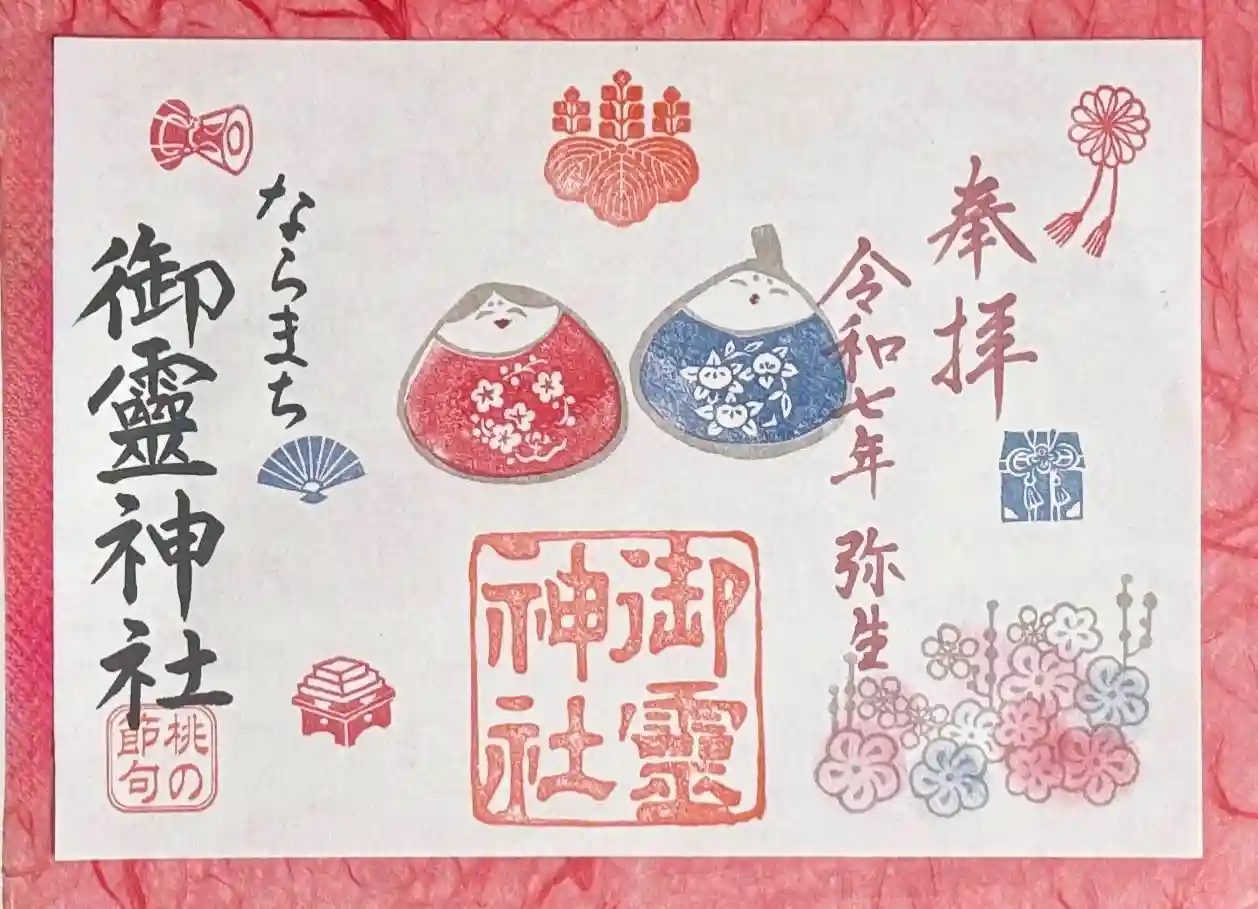 奉拝
令和七年 弥生
御靈
神社
ならまち
御靈神社
桃の
節句